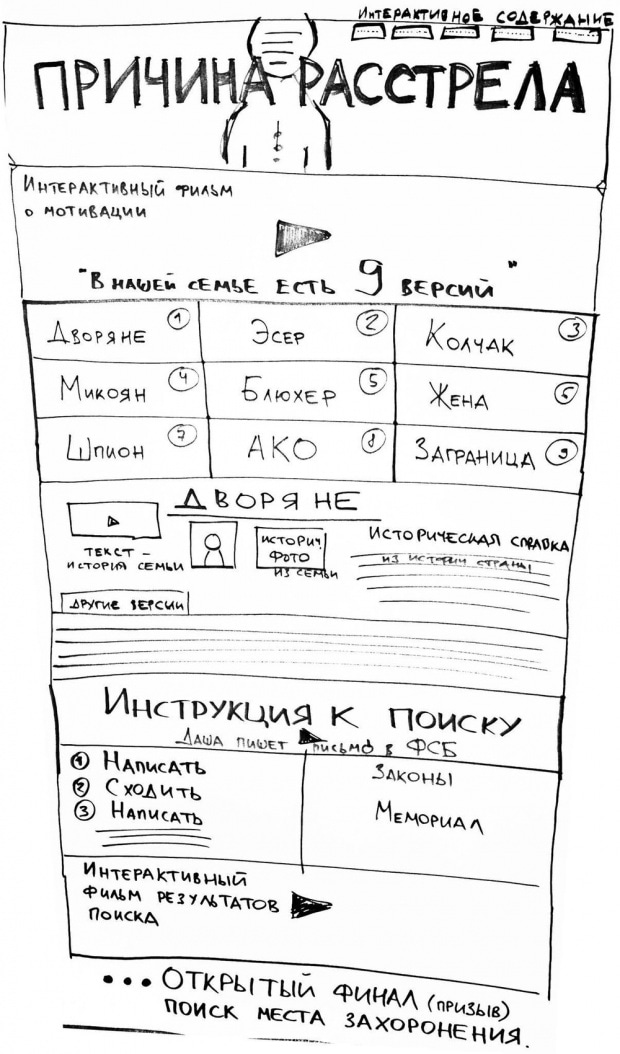 Интерактивное содержание
ПРИЧИНА РАССТРЕЛА
Интерактивный фильм
о мотивации
"В нашей семье есть 9 версий"
Дворяне 1
Эсер 2
Колчак 3
Микоян 4
Блюхер 5
Жена 6
Шпион 7
АКО 8
Заграница 9
Дворяне
текст -
история семьи
историч.
фото
из семьи
Историческая справка
из истории страны
другие версии
Инструкция к поиску
Даша пишет письмо в ФСБ
1 Написать
2 Сходить
3 Написать
Законы
Мемориал
Интерактивный
фильм результатов
поиска
... Открытый финал (призыв)
поиск места захоронения.